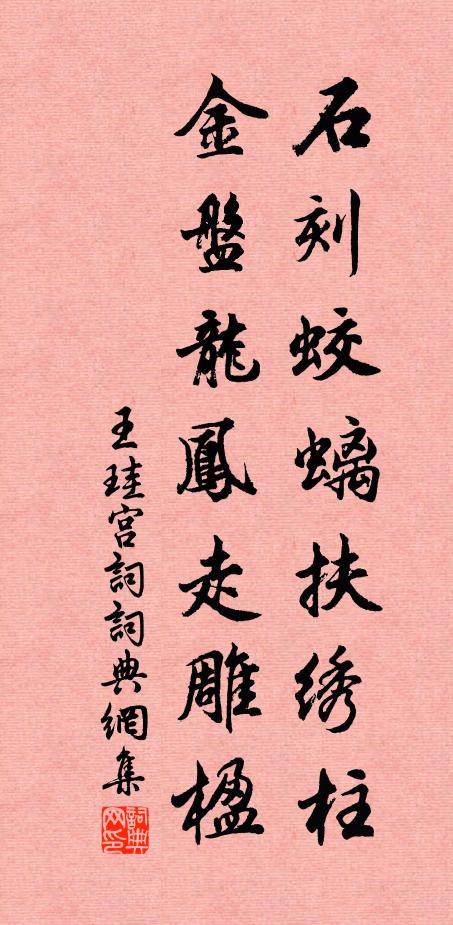 石刻蛟螭扶绣柱
金盤龍鳳走雕楹
王珪宫詞詞典網集
詞典网印